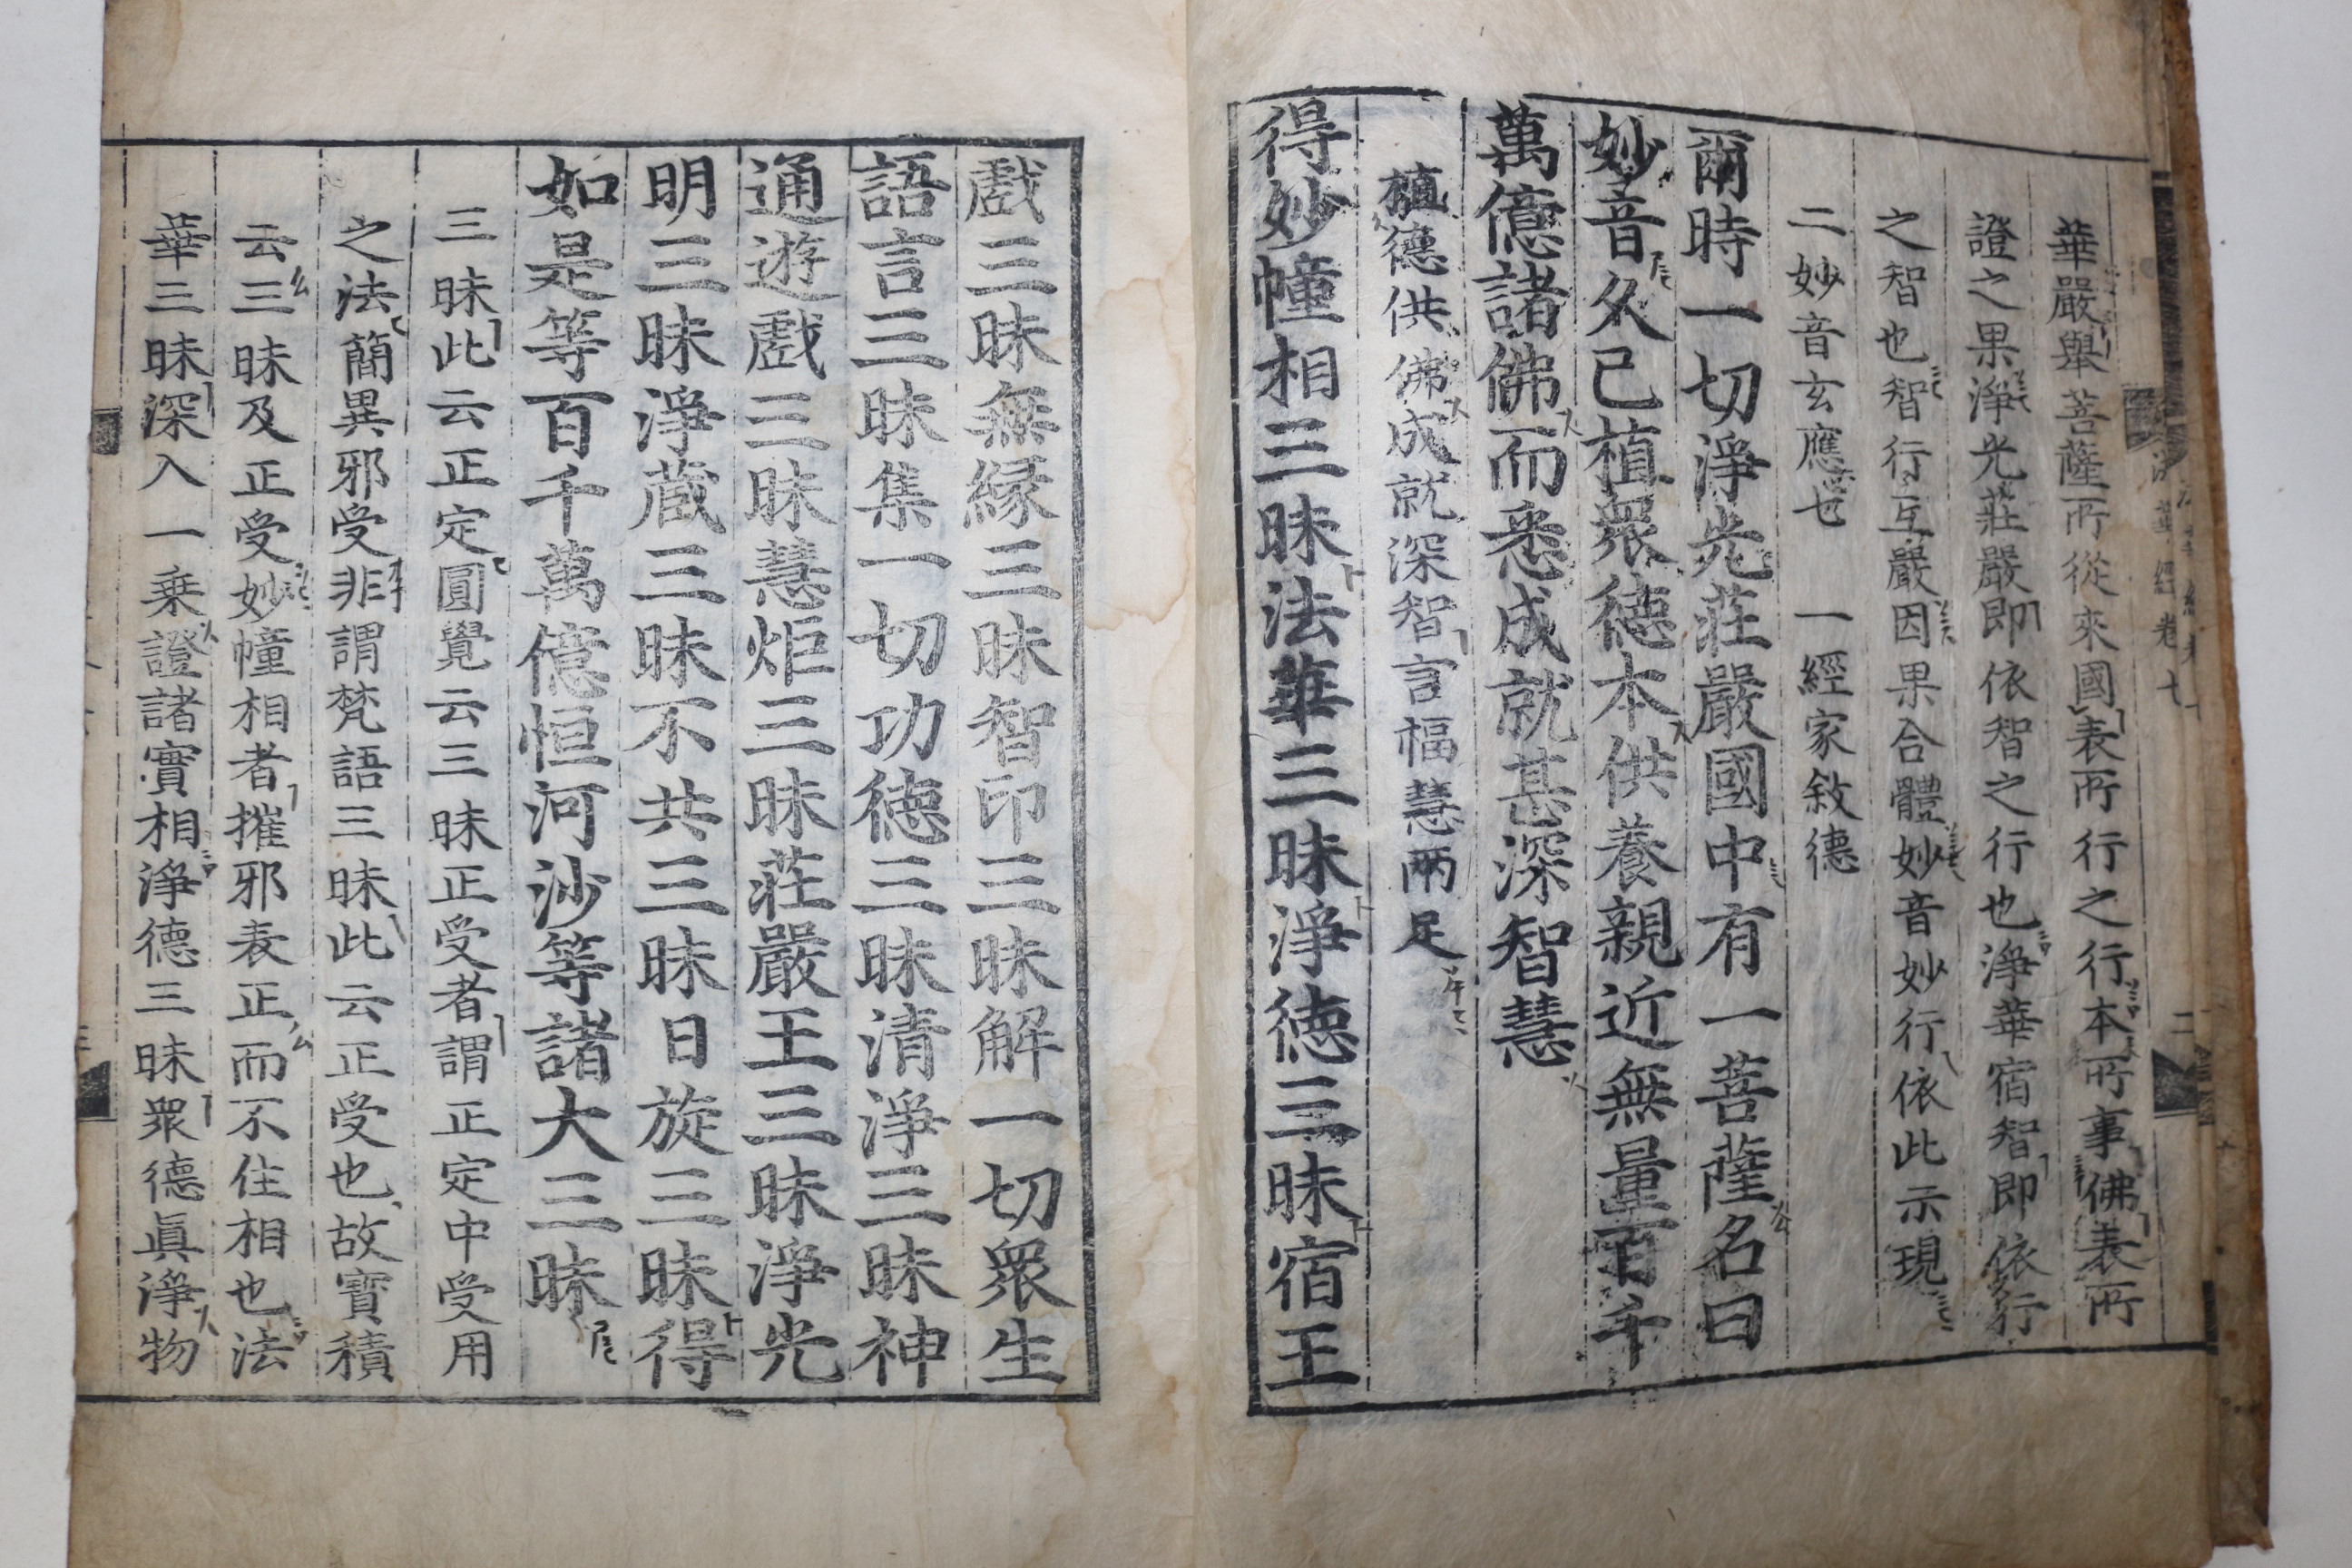 華嚴舉菩薩所從來國表所行之行本所事佛表所
證之果淨光莊嚴即依智之行也淨華宿智即依行
之智也智行互嚴因果合體妙音妙行依此示現
二妙音玄應也 一經家敘德
爾時一切淨光莊嚴國中有一菩薩名曰
妙音久已植衆德本供養親近無量百千
萬億諸佛而悉成就甚深智慧
植德供佛成就深智言福慧兩足
得妙幢相三昧法華三昧淨德三昧宿王
戲三昧無緣三昧智印三昧解一切衆生
語言三昧集一切功德三昧清淨三昧神
通遊戲三昧慧炬三昧莊嚴王三昧淨光
明三昧淨藏三昧不共三昧日旋三昧得
如是等百千萬億恒河沙等諸大三昧
三昧此云正定圓覺云三昧正受者謂正定中受用
之法簡異邪受非謂梵語三昧此云正受也故寶積
云三昧及正受妙幢相者摧邪表正而不住相也法
華三昧深入一乗證諸實相淨德三昧衆德眞淨物